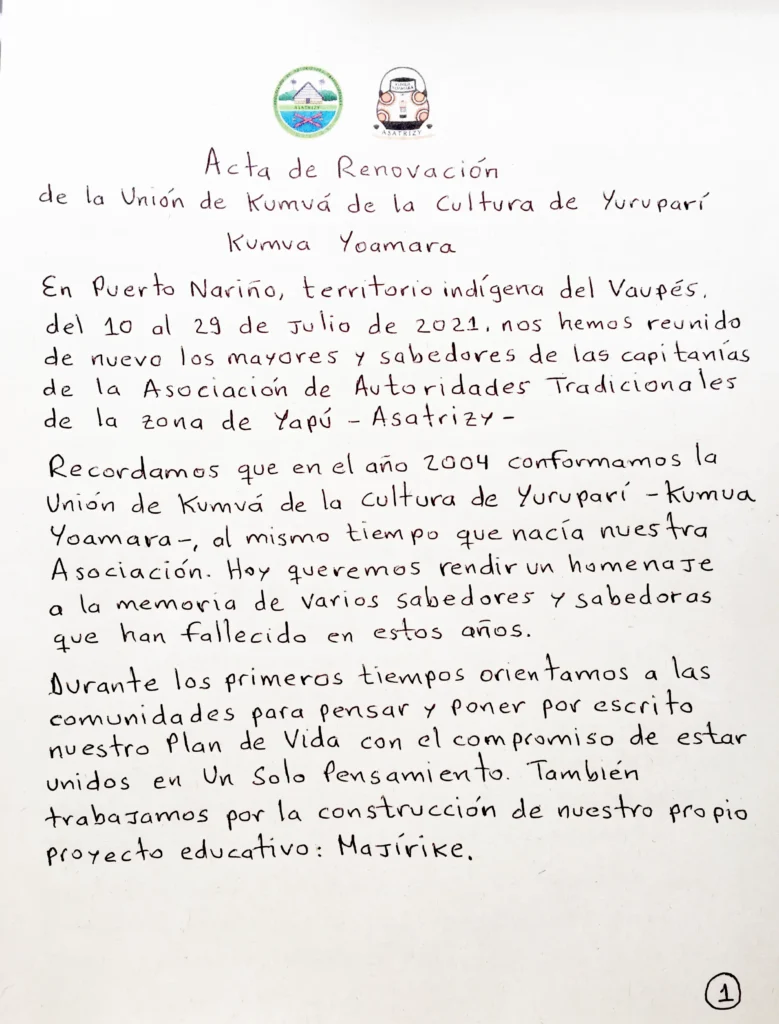 ASATRIZY
ASATRIZY
Acta de Renovación
de la Unión de Kumuá de la Cultura de Yuruparí
Kumua Yoamara
En Puerto Nariño, territorio indígena del Vaupés,
del 10 al 29 de Julio de 2021, nos hemos reunido
de nuevo los mayores y sabedores de las capitanías
de la Asociación de Autoridades Tradicionales
de la zona de Yapú - Asatrizy -
Recordamos que en el año 2004 conformamos la
Unión de Kumuá de la Cultura de Yuruparí - Kumua
Yoamara -, al mismo tiempo que nacía nuestra
Asociación. Hoy queremos rendir un homenaje
a la memoria de varios sabedores y sabedoras
que han fallecido en estos años.
Durante los primeros tiempos orientamos a las
comunidades para pensar y poner por escrito
nuestro Plan de Vida con el compromiso de estar
unidos en Un Solo Pensamiento. También
trabajamos por la construcción de nuestro propio
proyecto educativo: Majírike.
1